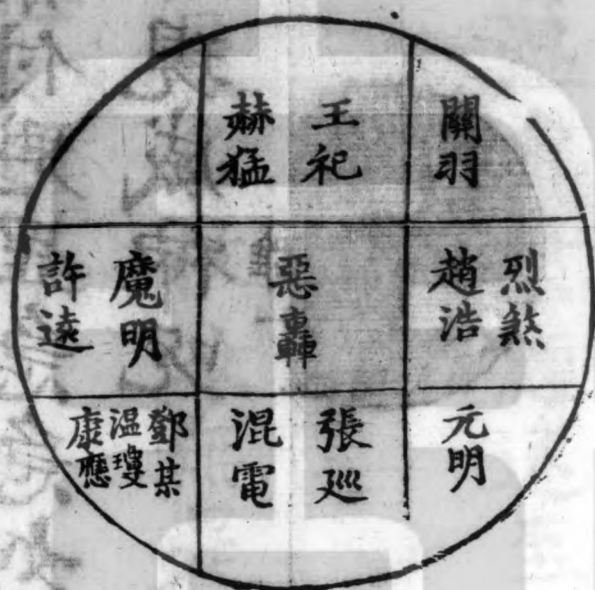 關羽
王祀
赫猛
烈煞
趙浩
惡轟
魔明
許遠
元明
張巡
混電
鄧某
溫瓊
康應